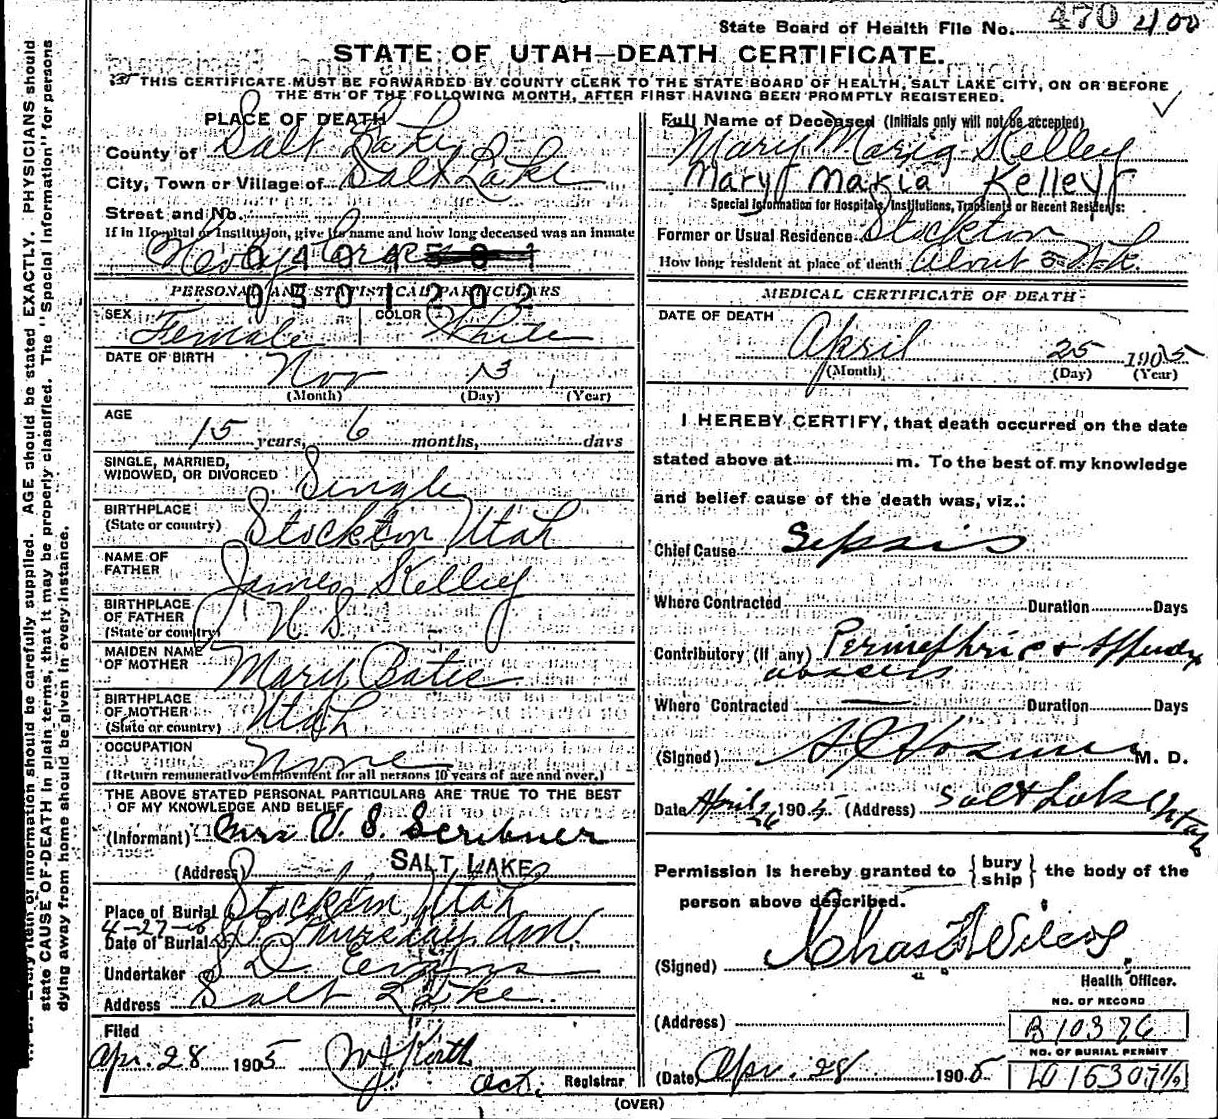 State Board of Health File No. 470 400
STATE OF UTAH—DEATH CERTIFICATE.
THIS CERTIFICATE MUST BE FORWARDED BY COUNTY CLERK TO THE STATE BOARD OF HEALTH, SALT LAKE CITY, ON OR BEFORE
THE 5TH OF THE FOLLOWING MONTH, AFTER FIRST HAVING BEEN PROMPTLY REGISTERED.
PLACE OF DEATH
County of Salt Lake
City, Town or Village of Salt Lake
Street and No.
If in Hospital or Institution, give its name and how long deceased was an inmate
Holy Cross
0404581
0501202
PERSONAL AND STATISTICAL PARTICULARS
SEX Female COLOR White
DATE OF BIRTH Nov 13
(Month) (Day) (Year)
AGE
15 years, 6 months, days
SINGLE, MARRIED,
WIDOWED, OR DIVORCED Single
BIRTHPLACE
(State or country) Stockton Utah
NAME OF
FATHER James Kelley
BIRTHPLACE
OF FATHER
(State or country) U. S.
MAIDEN NAME
OF MOTHER Mary Bates
BIRTHPLACE
OF MOTHER
(State or country) Utah
OCCUPATION None
(Return remunerative employment for all persons 10 years of age and over.)
THE ABOVE STATED PERSONAL PARTICULARS ARE TRUE TO THE BEST
OF MY KNOWLEDGE AND BELIEF
(Informant) Mrs V. S. Scribner
(Address) SALT LAKE
Place of Burial Stockton Utah
4-27-05
Date of Burial Thursday AM.
Undertaker S D. Evans
Address Salt Lake.
Filed
Apr. 28 1905 W J Korth
Act. Registrar
Full Name of Deceased (Initials only will not be accepted)
Mary Maria Kelley
Mary Maria Kelley
Special Information for Hospitals, Institutions, Transients or Recent Residents:
Former or Usual Residence Stockton
How long resident at place of death About 3 Wk.
MEDICAL CERTIFICATE OF DEATH
DATE OF DEATH
April 25 1905
(Month) (Day) (Year)
I HEREBY CERTIFY, that death occurred on the date
stated above at m. To the best of my knowledge
and belief cause of the death was, viz.:
Chief Cause Sepsis
Where Contracted Duration Days
Contributory (if any) Perinephric & Appendix
abscess
Where Contracted Duration Days
(Signed) M. D.
Date April 26 1905 (Address) Salt Lake Utah
Permission is hereby granted to { bury
ship } the body of the
person above described.
(Signed) Chas F Wilcox
Health Officer.
NO. OF RECORD
(Address) B10376
NO. OF BURIAL PERMIT
(Date) Apr. 28 1905
(OVER)
Every item of information should be carefully supplied. AGE should be stated EXACTLY. PHYSICIANS should
state CAUSE OF DEATH in plain terms, that it may be properly classified. The "Special Information" for persons
dying away from home should be given in every instance.